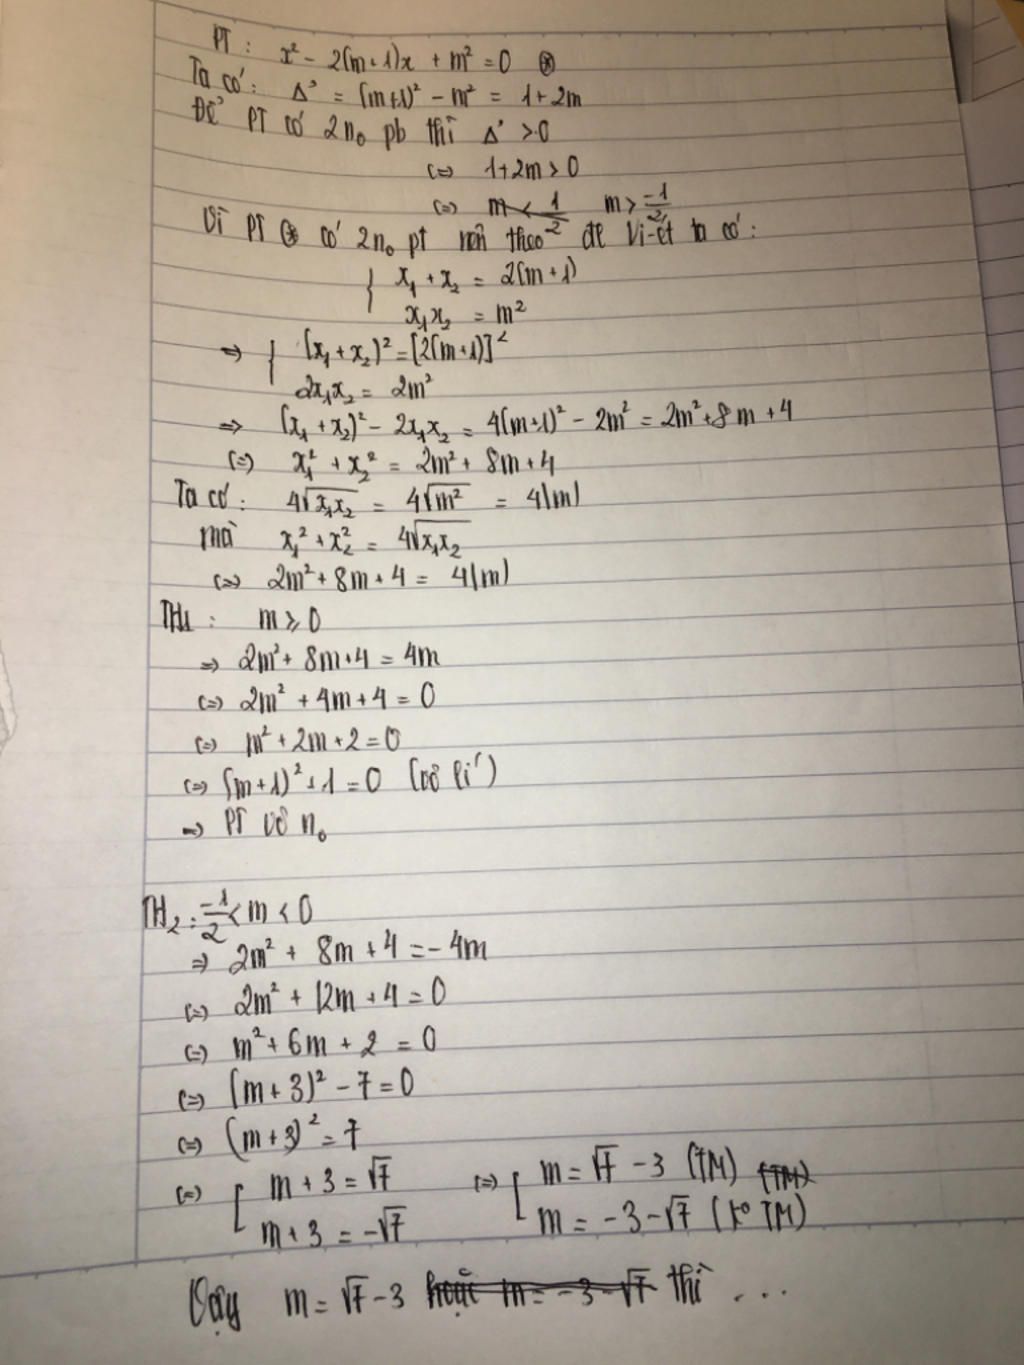 PT : x² - 2(m+1)x + m² = 0 ⊛
Ta có : Δ' = (m+1)² - m² = 1+2m
Để PT có 2n₀ pb thì Δ' > 0
(=) 1+2m > 0
(=) m < 1/-2 m > -1/2
Vì PT ⊛ có 2n₀ pt nên theo đl Vi-ét ta có :
{ x₁ + x₂ = 2(m+1)
x₁x₂ = m²
=> { (x₁ + x₂)² = [2(m+1)]²
2x₁x₂ = 2m²
=> (x₁ + x₂)² - 2x₁x₂ = 4(m+1)² - 2m² = 2m² + 8m + 4
(=) x₁² + x₂² = 2m² + 8m + 4
Ta có : 4√x₁x₂ = 4√m² = 4|m|
mà x₁² + x₂² = 4√x₁x₂
(=) 2m² + 8m + 4 = 4|m|
TH1 : m ⩾ 0
=> 2m² + 8m + 4 = 4m
(=) 2m² + 4m + 4 = 0
(=) m² + 2m + 2 = 0
(=) (m+1)² + 1 = 0 (vô lí)
=> PT vô n₀
TH₂ : -1/2 < m < 0
=> 2m² + 8m + 4 = - 4m
(=) 2m² + 12m + 4 = 0
(=) m² + 6m + 2 = 0
(=) (m + 3)² - 7 = 0
(=) (m + 3)² = 7
(=) [ m + 3 = √7 (=) [ m = √7 - 3 (TM) (TM)
m + 3 = -√7 m = -3 - √7 (ko TM)
Vậy m = √7 - 3 hoặc m = -3 - √7 thì ...